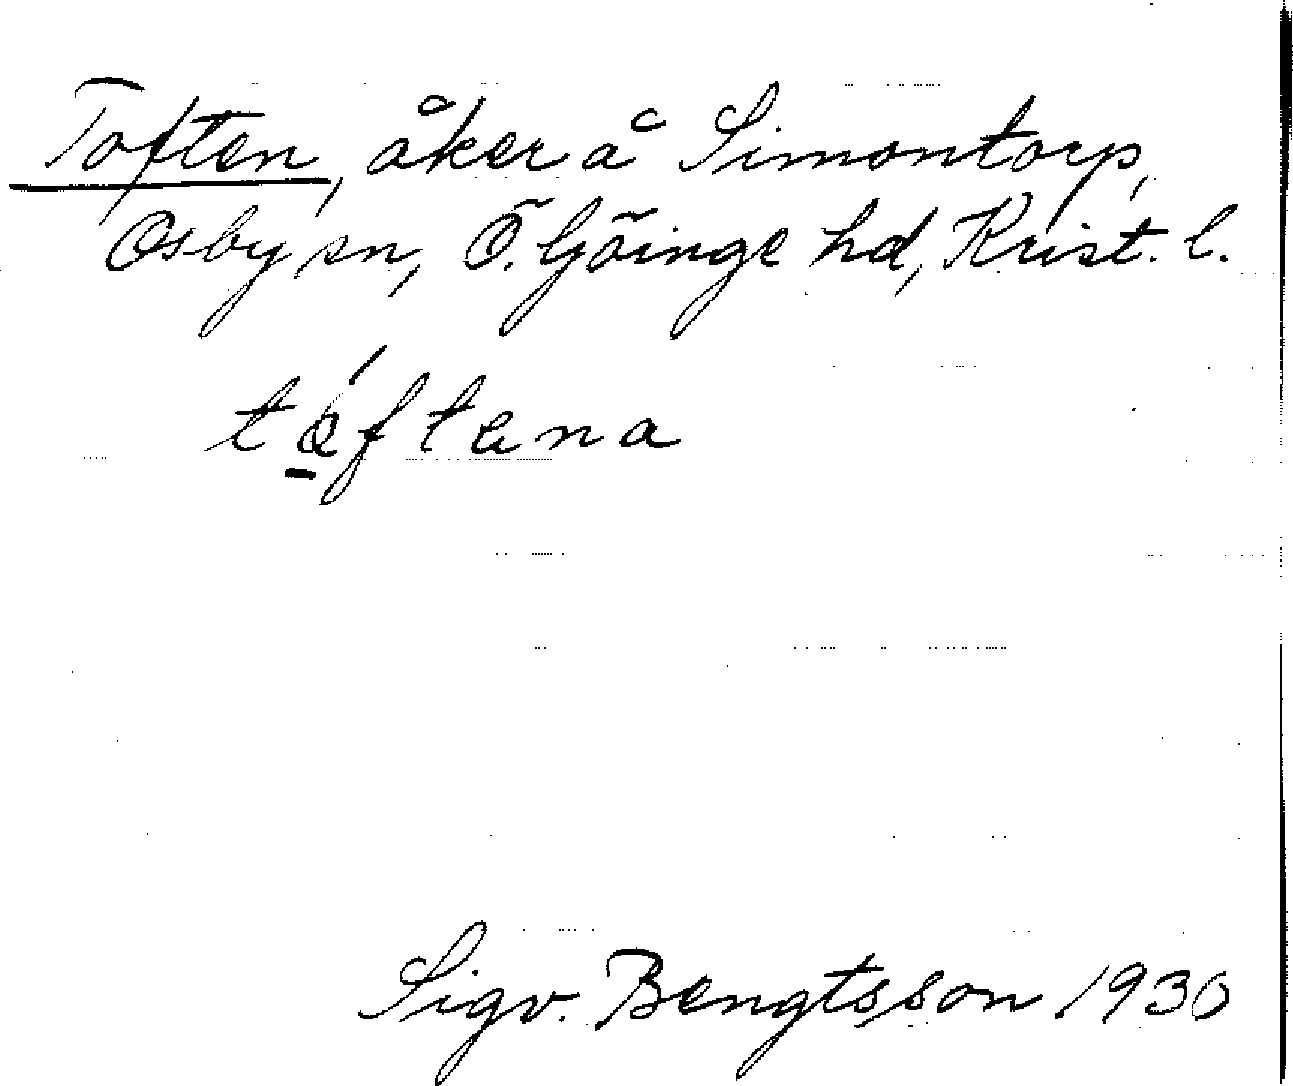 Toften, åker å Simontorp,
Osby sn, Ö. Göinge hd, Krist. l.
tǫ́ftena
Sigv. Bengtsson 1930